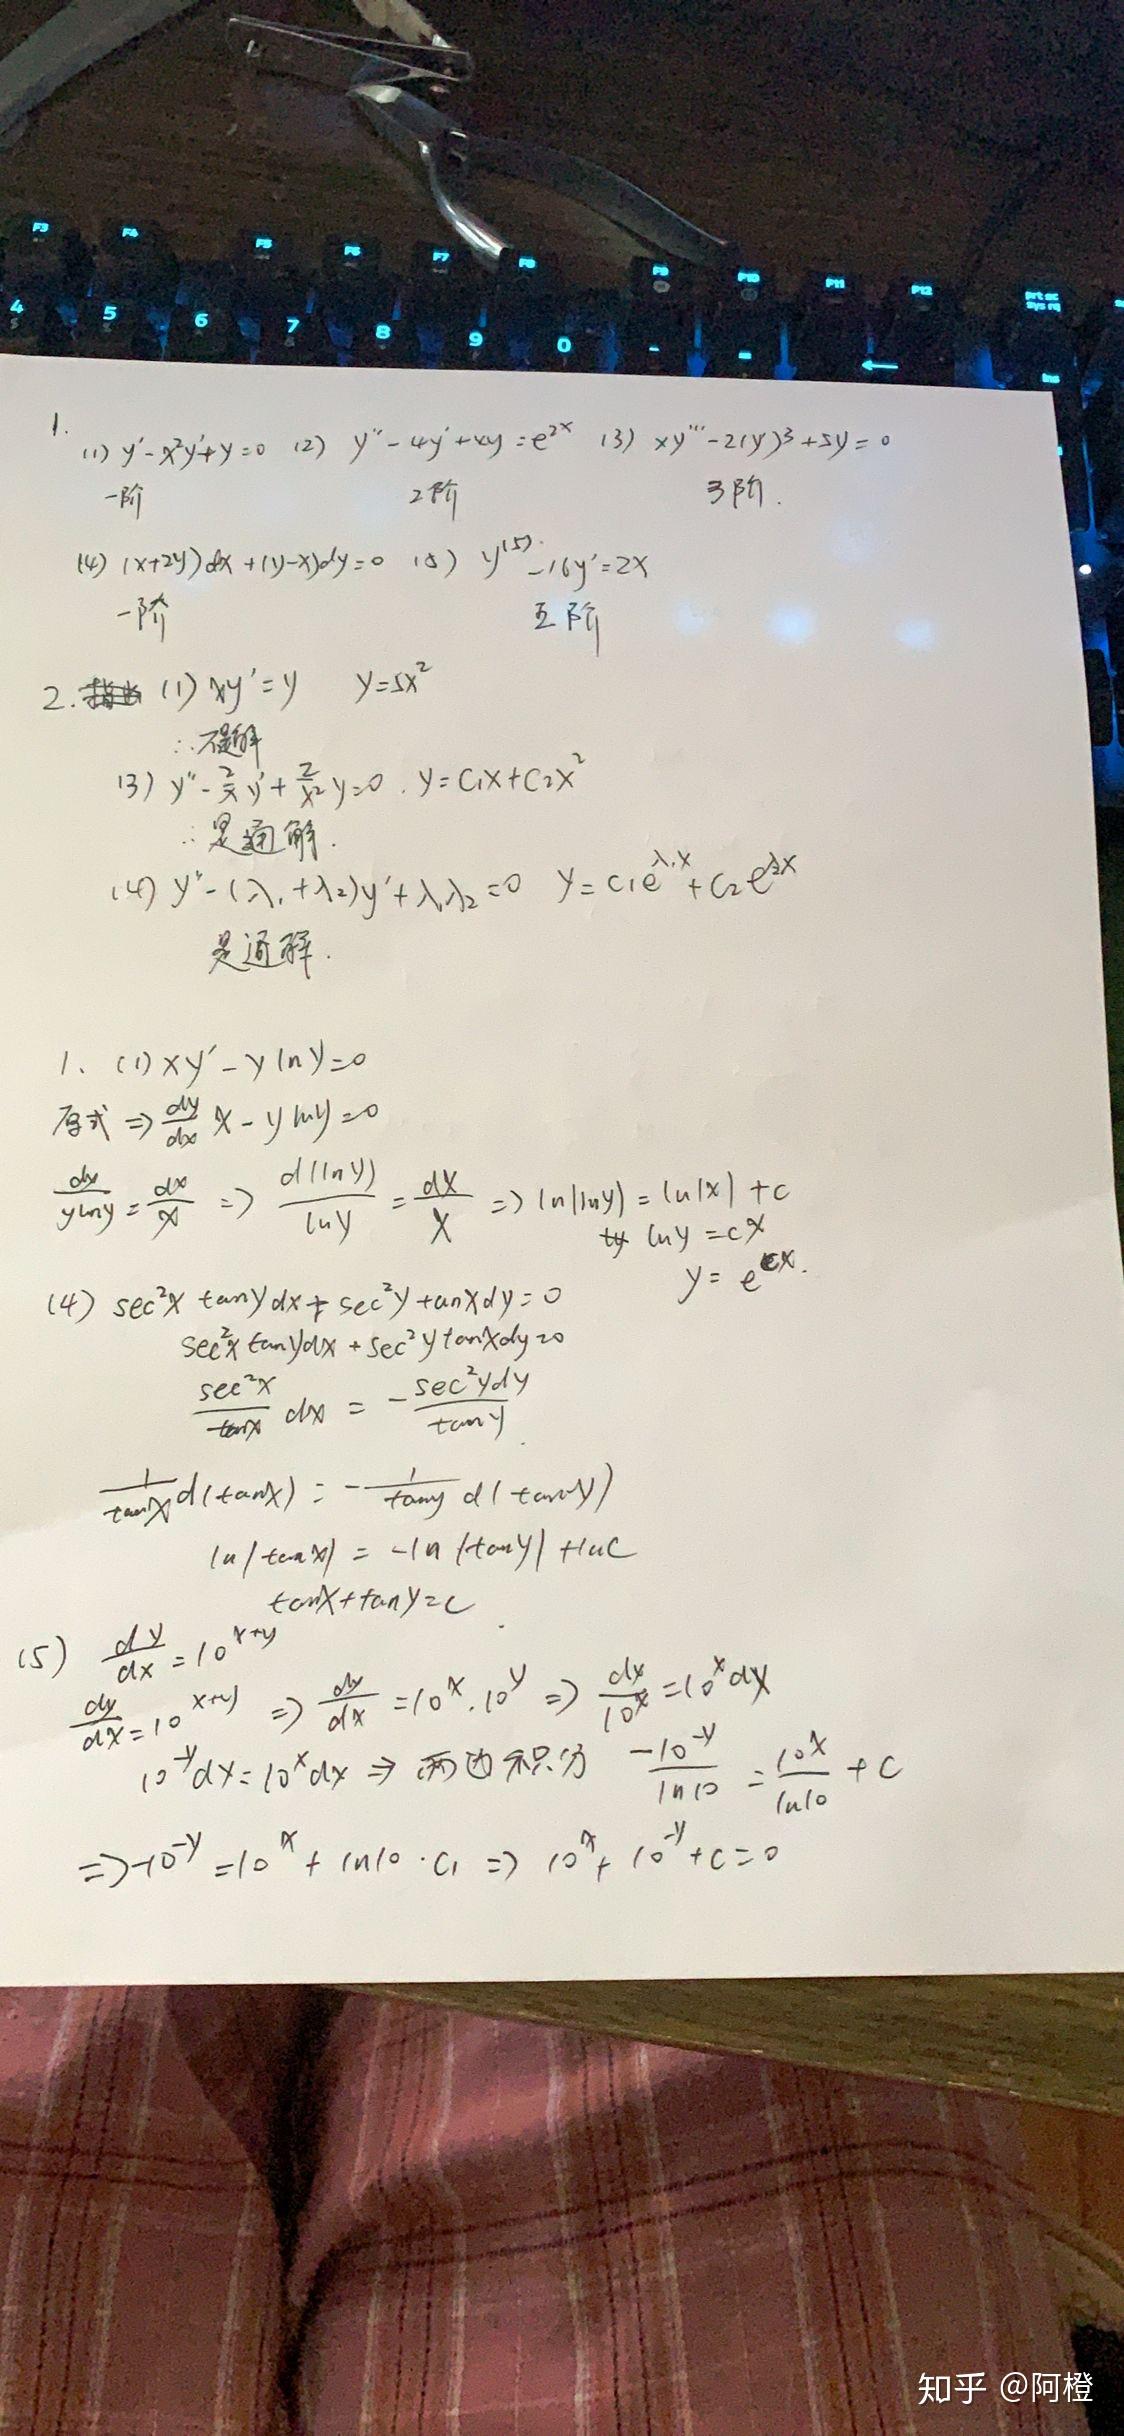 F3 F4 F5 F6 F7 F8 F9 F10 F11 F12 prt sc
sys rq
4 5 6 7 8 9 0 - = ← Ins
1.
(1) y'-x²y'+y=0 (2) y''-4y'+xy=e^{2x} (3) xy'''-2(y')³+5y=0
一阶 2阶 3阶.
(4) (x+2y)dx+(y-x)dy=0 (5) y^{(5)}-16y'=2x
一阶 五阶
2. (1) xy'=y y=5x²
∴不是解
(3) y''-\frac{2}{x}y'+\frac{2}{x²}y=0. y=C₁x+C₂x²
∴是通解.
(4) y''-(λ₁+λ₂)y'+λ₁λ₂=0 y=C₁e^{λ₁x}+C₂e^{λ₂x}
是通解.
1、(1) xy'-ylny=0
原式⇒\frac{dy}{dx}x-ylny=0
\frac{dy}{ylny}=\frac{dx}{x} ⇒ \frac{d(lny)}{lny}=\frac{dx}{x} ⇒ ln|lny|=ln|x|+c
lny=cx
y=e^{cx}.
(4) sec²x tanydx+sec²y tanxdy=0
sec²x tanydx+sec²y tanxdy=0
\frac{sec²x}{tanx}dx=-\frac{sec²ydy}{tany}
\frac{1}{tanx}d(tanx)=-\frac{1}{tany}d(tany)
ln|tanx|=-ln|tany|+lnC
tanx+tany=C
(5) \frac{dy}{dx}=10^{x+y}
\frac{dy}{dx}=10^{x+y} ⇒ \frac{dy}{dx}=10^x·10^y ⇒ \frac{dx}{10^x}=10^xdy
10^{-y}dy=10^xdx ⇒ 两边积分 \frac{-10^{-y}}{ln10}=\frac{10^x}{ln10}+C
⇒-10^{-y}=10^x+ln10·C₁ ⇒ 10^x+10^{-y}+C=0
知乎 @阿橙